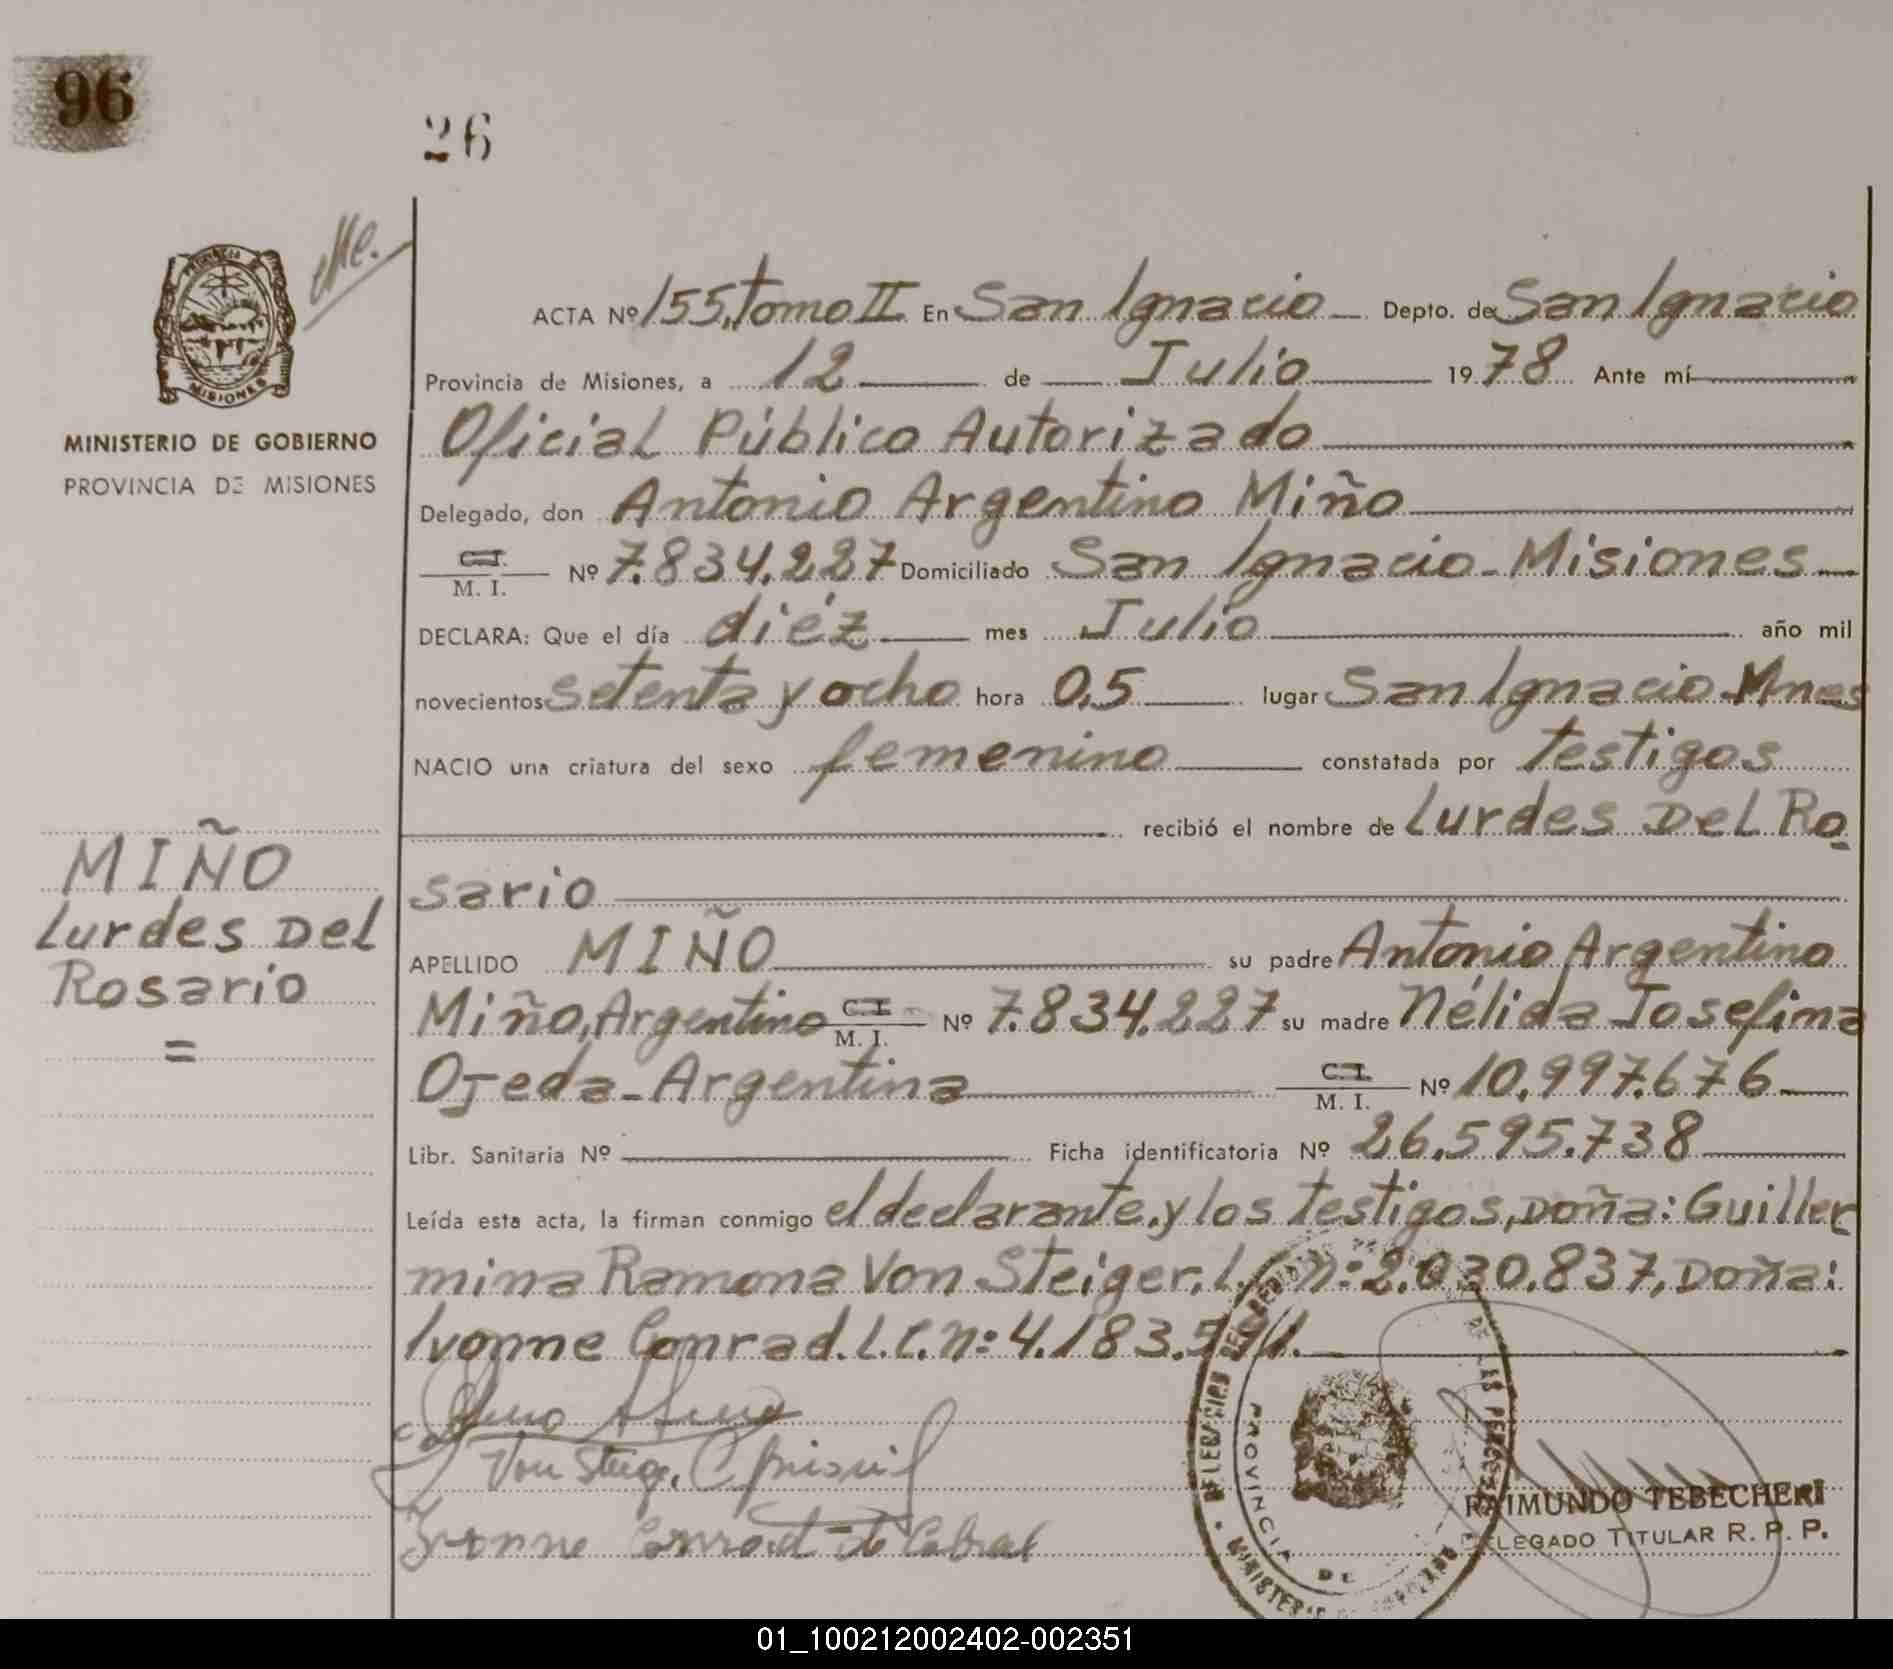 96
26
Me.
PROVINCIA DE
MISIONES
MINISTERIO DE GOBIERNO
PROVINCIA DE MISIONES
ACTA Nº 155, Tomo II En San Ignacio Depto. de San Ignacio
Provincia de Misiones, a 12 de Julio 1978 Ante mí
Oficial Público Autorizado
Delegado, don Antonio Argentino Miño
C.I.
M. I. Nº 7.834.227 Domiciliado San Ignacio - Misiones
DECLARA: Que el día diéz mes Julio año mil
novecientos setenta y ocho hora 0,5 lugar San Ignacio Mnes
NACIO una criatura del sexo femenino constatada por testigos
recibió el nombre de Lurdes Del Ro
sario
MIÑO
Lurdes Del
Rosario
=
APELLIDO MIÑO su padre Antonio Argentino
Miño, Argentino C.I. M. I. Nº 7.834.227 su madre Nélida Josefina
Ojeda - Argentina C.I. M. I. Nº 10.997.676
Libr. Sanitaria Nº Ficha identificatoria Nº 26.595.738
Leída esta acta, la firman conmigo el declarante, y los testigos, Doña: Guiller
mina Ramona Von Steiger, L. n: 2.030.837, Doña:
Ivonne Conrad. L.C. n: 4.183.
Von Steiger
Ivonne Conrad de Cabral
PROVINCIA DE
RAIMUNDO TEBECHERI
DELEGADO TITULAR R. P. P.
01_100212002402-002351